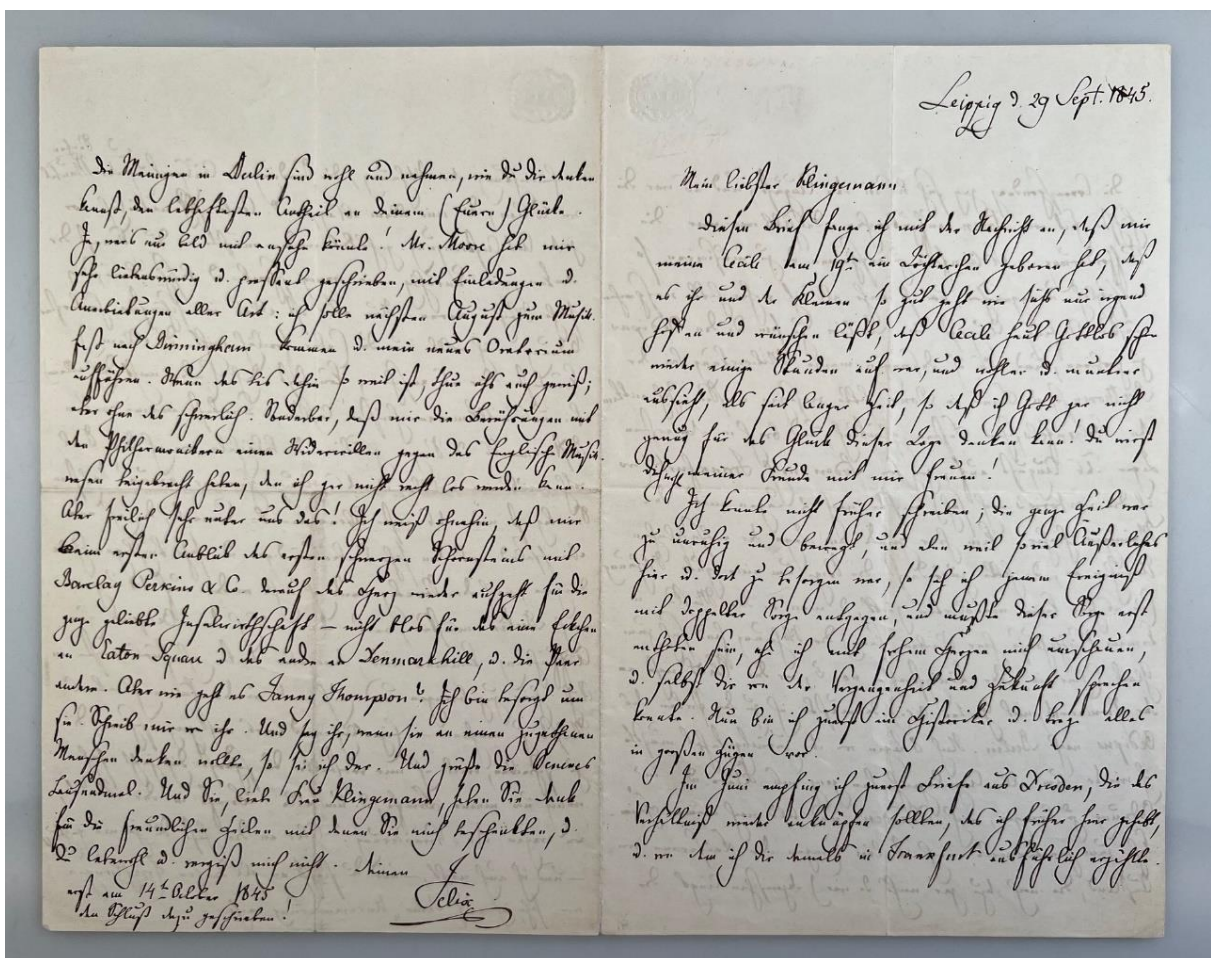 Leipzig d. 29 Sept. 1845.
Mein liebster Klingemann
Diesen Brief fange ich mit der Nachricht an, daß mir
meine Cécile am 19ten ein Töchterchen geboren hat, daß
es ihr und der Kleinen so gut geht wie sichs nur irgend
hoffen und wünschen läßt, daß Cécile heut Gottlob schon
wieder einige Stunden auf war, und wohler u. muntrer
aussieht, als seit langer Zeit, so daß ich Gott gar nicht
genug für das Glück dieser Tage danken kann! Du wirst
Dich meiner Freude mit mir freuen!
Ich konnte nicht früher schreiben; die ganze Zeit war
zu unruhig und bewegt, und eben weil so viel Äußerliches
hier u. dort zu besorgen war, so sah ich jenem Ereigniß
mit doppelter Sorge entgegen, und mußte dieser Sorge erst
enthoben sein, ehe ich mit frohem Herzen mich umschauen,
u. selbst Dir von der Vergangenheit und Zukunft sprechen
konnte. Nun bin ich zuerst ein Historiker u. trage alles
in großen Zügen vor.
Im Juni empfing ich zuerst Briefe aus Dresden, die das
Verhältniß wieder anknüpfen sollten, das ich früher hier gehabt,
u. von dem ich Dir damals in Frankfurt ausführlich erzählte.
Die Meinigen in Berlin sind wohl und nehmen, wie Du Dir denken
kannst, den lebhaftesten Antheil an Deinem (Euern) Glücke.
Ja, wer's nur bald mit ansehn könnte! Mr. Moore hat mir
sehr liebenswürdig u. pressant geschrieben, mit Einladungen u.
Anerbietungen aller Art: ich solle nächsten August zum Musik-
fest nach Birmingham kommen u. mein neues Oratorium
aufführen. Wenn das bis dahin so weit ist, thue ichs auch gewiß;
aber ohne das schwerlich. Sonderbar, daß mir die Berührungen mit
den Philharmonikern einen Widerwillen gegen das Englische Musik-
wesen beigebracht haben, den ich gar nicht recht los werden kann.
Aber freilich sehr unter uns das! Ich weiß ohnehin, daß mir
beim ersten Anblick des ersten schwarzen Schornsteins mit
Barclay Perkins & C. darauf das Herz wieder aufgeht für die
ganze geliebte Inselwirthschaft – nicht blos für das eine Eckchen
an Eaton Square u. das andre an Denmarkhill, u. die Paar
andern. Aber wie geht es Fanny Thompson? Ich bin besorgt um
sie. Schreib mir von ihr. Und sag ihr, wenn sie an einen zugethanen
Menschen denken wollte, so sei ich der. Und grüße die Beneckes
tausendmal. Und Sie, liebe Frau Klingemann, haben Sie Dank
für die freundlichen Zeilen mit denen Sie mich beschenkten, u.
Du lebewohl u. vergiß mich nicht. Deinen
Felix
erst am 14ten October 1845
den Schluß dazu geschrieben!